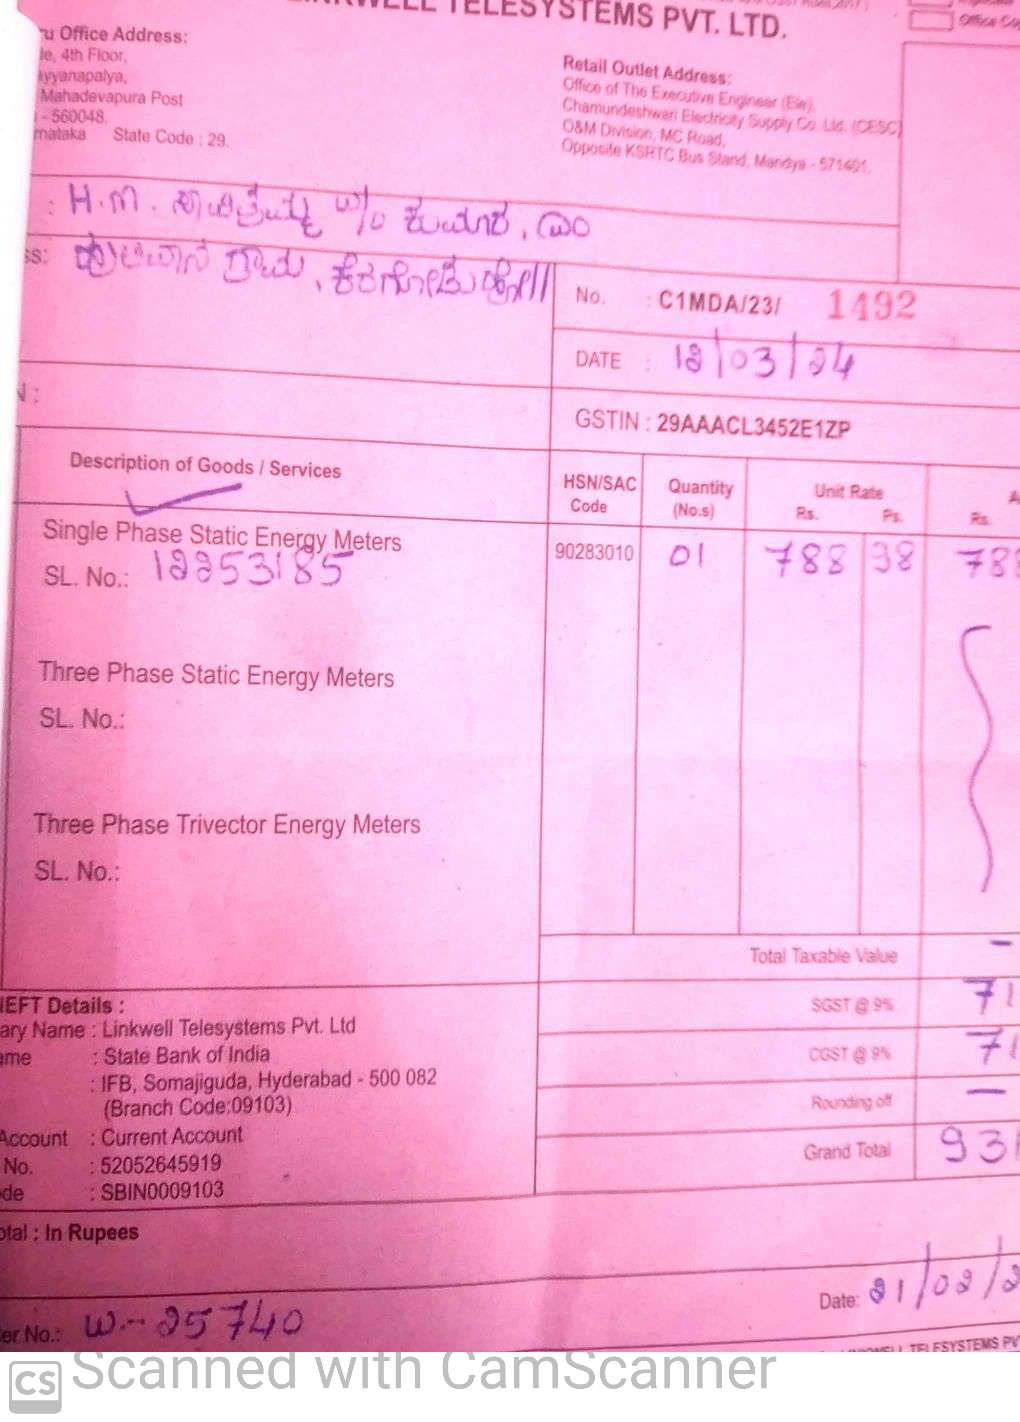 TELESYSTEMS PVT. LTD.
Office Cop
u Office Address:
le, 4th Floor,
ayyanapalya,
Mahadevapura Post
- 560048.
rnataka State Code : 29.
Retail Outlet Address:
Office of The Executive Engineer (Ele),
Chamundeshwari Electricity Supply Co. Ltd. (CESC)
O&M Division, MC Road,
Opposite KSRTC Bus Stand, Mandya - 571401.
: H.M. W/o ಕುಮಾರ, ಎಂ
ss: ಗ್ರಾಮ, ಕೆರಗೋಡು ಹೋ||
No. : C1MDA/23/ 1492
DATE : 12/03/24
N :
GSTIN : 29AAACL3452E1ZP
Description of Goods / Services
HSN/SAC Code
Quantity (No.s)
Unit Rate
Rs. Ps.
A
Rs.
Single Phase Static Energy Meters
90283010 01 788 98 788
SL. No.: 12253185
Three Phase Static Energy Meters
SL. No.:
Three Phase Trivector Energy Meters
SL. No.:
Total Taxable Value -
SGST @ 9% 71
CGST @ 9% 71
Rounding off -
Grand Total 931
NEFT Details :
ary Name : Linkwell Telesystems Pvt. Ltd
ame : State Bank of India
: IFB, Somajiguda, Hyderabad - 500 082
(Branch Code:09103)
Account : Current Account
No. : 52052645919
de : SBIN0009103
otal : In Rupees
er No.: W-25740
Date: 21/02/2
TELESYSTEMS PV
CS Scanned with CamScanner